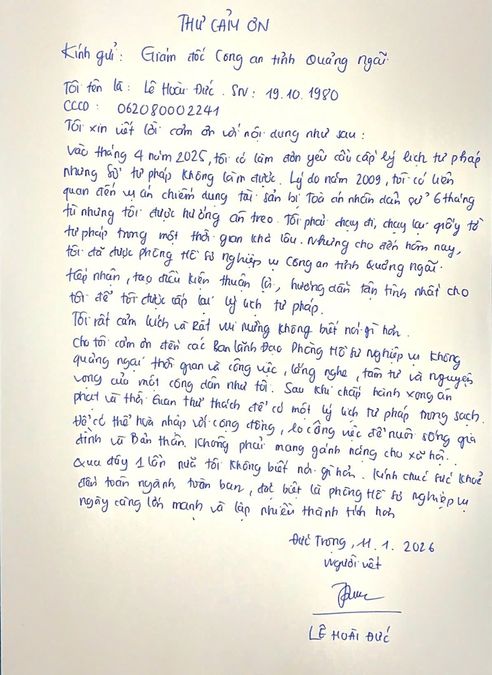 THƯ CẢM ƠN
Kính gửi: Giám đốc Công an tỉnh Quảng Ngãi
Tôi tên là: Lê Hoài Đức. SN: 19.10.1980
CCCD: 062080002241
Tôi xin viết lời cảm ơn với nội dung như sau:
Vào tháng 4 năm 2025, tôi có làm đơn yêu cầu cấp lý lịch tư pháp
nhưng Sở tư pháp không làm được. Lý do năm 2009, tôi có liên
quan đến vụ án chiếm dụng tài sản bị Toà án nhân dân xử 6 tháng
tù nhưng tôi được hưởng án treo. Tôi phải chạy đi, chạy lại giấy tờ
tư pháp trong một thời gian khá lâu. Nhưng cho đến hôm nay,
tôi đã được phòng Hồ sơ nghiệp vụ Công an tỉnh Quảng Ngãi
tiếp nhận, tạo điều kiện thuận lợi, hướng dẫn tận tình nhất cho
tôi để tôi được cấp lại lý lịch tư pháp.
Tôi rất cảm kích và rất vui mừng không biết nói gì hơn
Cho tôi cảm ơn đến các Ban lãnh Đạo Phòng Hồ sơ nghiệp vụ không
quảng ngại thời gian và công việc, lắng nghe, tâm tư và nguyện
vọng của một công dân như tôi. Sau khi chấp hành xong án
phạt và thời gian thử thách để có một lý lịch tư pháp trong sạch.
Để có thể hoà nhập với cộng đồng, lo công việc để nuôi sống gia
đình và Bản thân. Không phải mang gánh nặng cho xã hội.
Qua đây 1 lần nữa tôi không biết nói gì hơn. Kính chúc sức khoẻ
đến toàn ngành, toàn ban, đặc biệt là phòng Hồ sơ nghiệp vụ
ngày càng lớn mạnh và lập nhiều thành tích hơn
Đức Trọng, 11.1.2026
Người viết
LÊ HOÀI ĐỨC